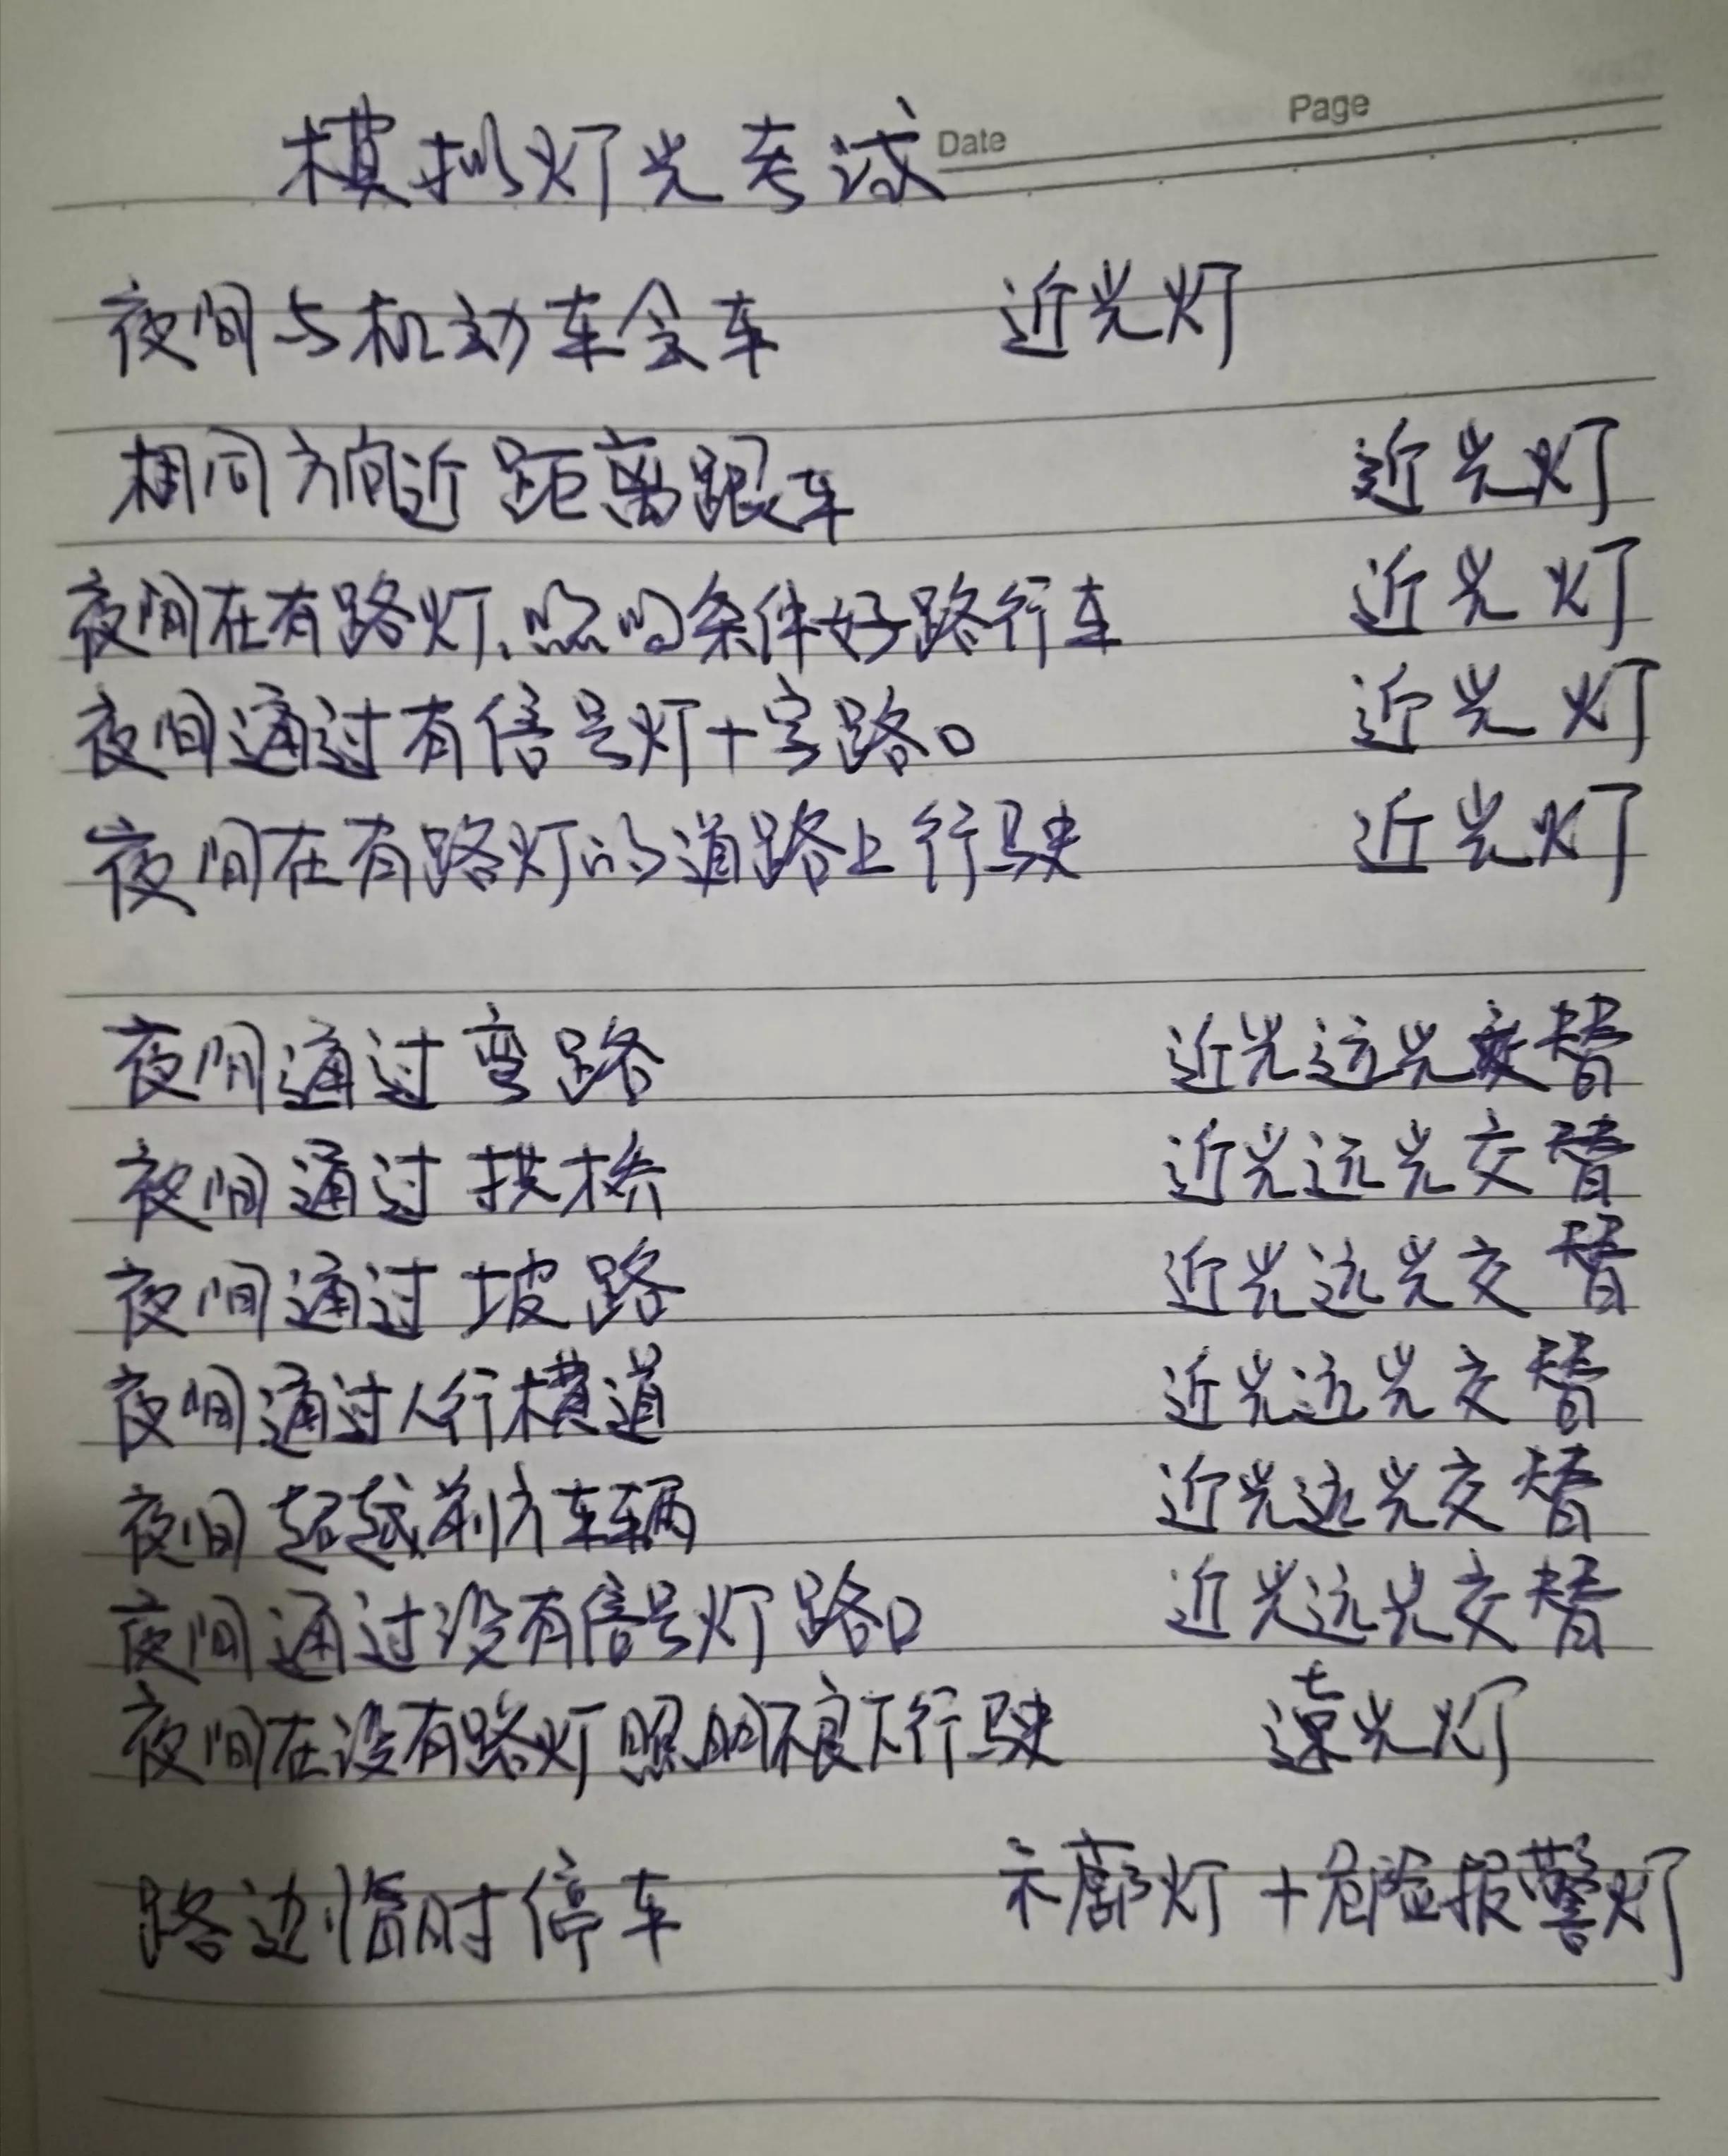 Page
模拟灯光考试 Date
夜间与机动车会车 近光灯
相同方向近距离跟车 近光灯
夜间在有路灯、照明条件好路行车 近光灯
夜间通过有信号灯十字路口 近光灯
夜间在有路灯的道路上行驶 近光灯
夜间通过弯路 近光远光交替
夜间通过拱桥 近光远光交替
夜间通过坡路 近光远光交替
夜间通过人行横道 近光远光交替
夜间超越前方车辆 近光远光交替
夜间通过没有信号灯路口 近光远光交替
夜间在没有路灯照明不良下行驶 远光灯
路边临时停车 示廓灯+危险报警灯